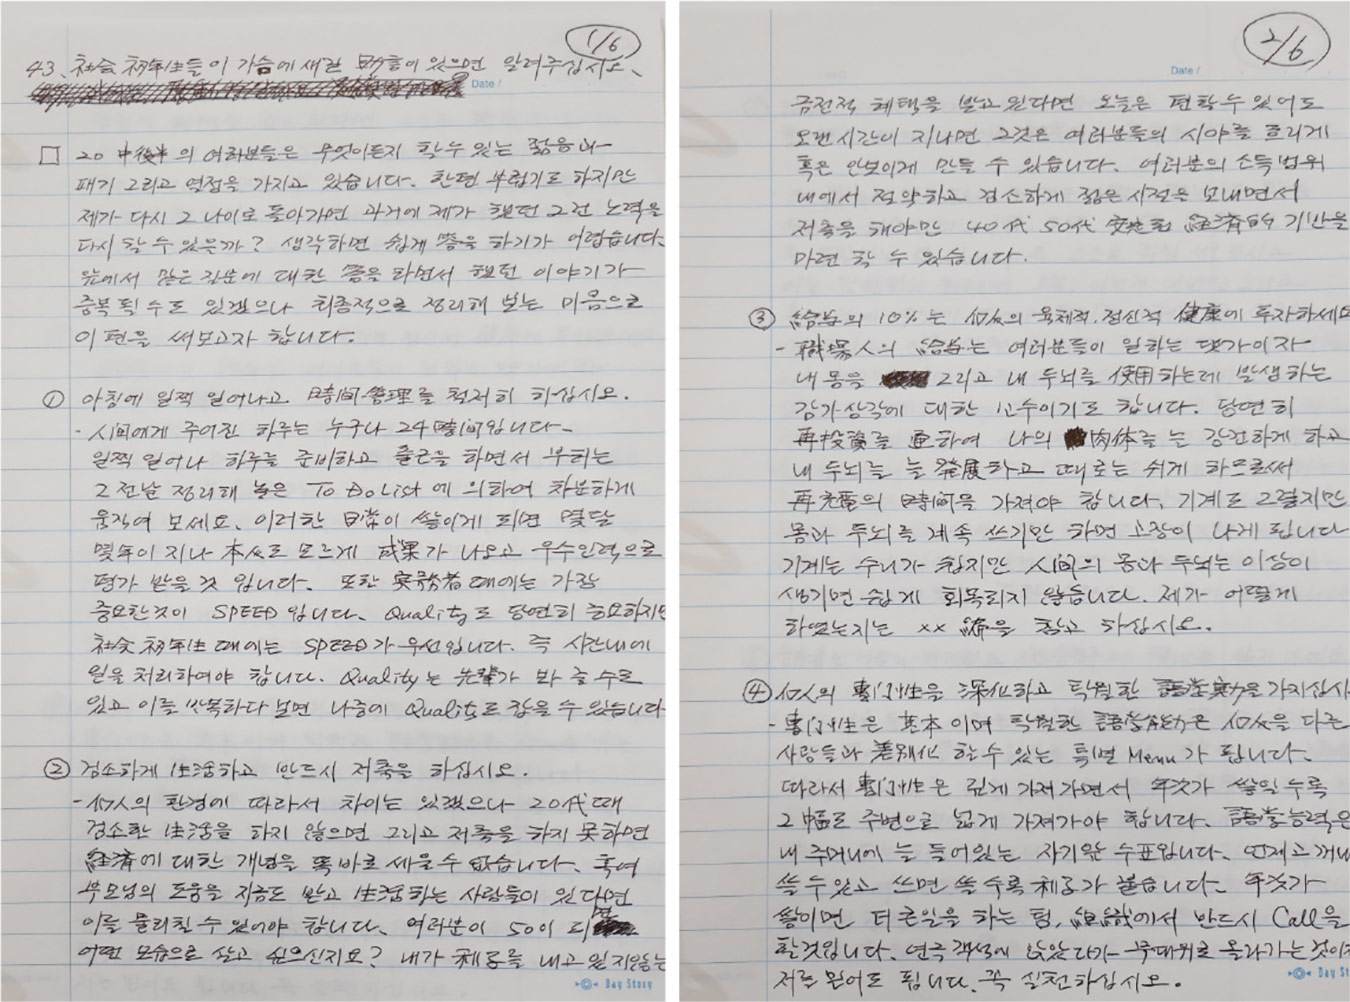 1/6
43. 社会 初年生들이 가슴에 새길 助言이 있으면 알려주십시오.
Date /
□ 20 中後半의 여러분들은 무엇이든지 할 수 있는 젊음과
패기 그리고 열정을 가지고 있습니다. 한편 부럽기도 하지만
제가 다시 그 나이로 돌아가면 과거에 제가 했던 그런 노력을
다시 할 수 있을까? 생각하면 쉽게 答을 하기가 어렵습니다.
앞에서 많은 질문에 대한 答을 하면서 했던 이야기가
중복될 수도 있겠으나 최종적으로 정리해 보는 마음으로
이 편을 써보고자 합니다.
① 아침에 일찍 일어나고 時間管理를 철저히 하십시오.
- 人間에게 주어진 하루는 누구나 24時間입니다.
일찍 일어나 하루를 준비하고 출근을 하면서 부터는
그 전날 정리해 놓은 To Do List에 의하여 차분하게
움직여 보세요. 이러한 日常이 쌓이게 되면 몇달
몇年이 지나 本人도 모르게 成果가 나오고 우수인력으로
평가 받을 것 입니다. 또한 実務者 때에는 가장
중요한것이 SPEED입니다. Quality도 당연히 중요하지만
社会 初年生 때에는 SPEED가 우선입니다. 즉 시간내에
일을 처리하여야 합니다. Quality는 先輩가 봐 줄 수도
있고 이를 반복하다 보면 나중에 Quality도 잡을 수 있습니다
② 검소하게 生活하고 반드시 저축을 하십시오.
- 個人의 환경에 따라서 차이는 있겠으나 20代때
검소한 生活을 하지 않으면 그리고 저축을 하지 못하면
経済에 대한 개념을 똑바로 세울 수 없습니다. 혹여
부모님의 도움을 지금도 받고 生活하는 사람들이 있다면
이를 물리칠 수 있어야 합니다. 여러분이 50이 되면
어떤 모습으로 살고 싶으신지요? 내가 利子를 내고 있지않는
Day Story
2/6
Date /
금전적 혜택을 받고 있다면 오늘은 편할 수 있어도
오랜 시간이 지나면 그것은 여러분들의 시야를 흐리게
혹은 안보이게 만들 수 있습니다. 여러분의 소득 범위
내에서 절약하고 검소하게 젊은 시절을 보내면서
저축을 해야만 40代 50代 安定된 経済的 기반을
마련 할 수 있습니다.
③ 給与의 10%는 個人의 육체적.정신적 健康에 투자하세요
- 職場人의 給与는 여러분들이 일하는 댓가이자
내 몸을 그리고 내 두뇌를 使用하는데 발생하는
감가상각에 대한 보수이기도 합니다. 당연히
再投資를 通하여 나의 肉体를 늘 강건하게 하고
내 두뇌를 늘 発展하고 때로는 쉬게 하므로써
再充電의 時間을 가져야 합니다. 기계도 그렇지만
몸과 두뇌를 계속 쓰기만 하면 고장이 나게 됩니다
기계는 수리가 쉽지만 人間의 몸과 두뇌는 이상이
생기면 쉽게 회복되지 않습니다. 제가 어떻게
하였는지는 xx 編을 참고 하십시오.
④ 個人의 專門性을 深化하고 탁월한 語学能力을 가지십시
- 專門性은 基本이며 탁월한 語学能力은 個人을 다른
사람들과 差別化 할 수 있는 특별 Menu가 됩니다.
따라서 專門性은 깊게 가져가면서 年次가 쌓일수록
그 幅도 주변으로 넓게 가져가야 합니다. 語学능력은
내 주머니에 늘 들어있는 자기앞 수표입니다. 언제고 꺼내
쓸 수 있고 쓰면 쓸 수록 利子가 붙습니다. 年次가
쌓이면 더 큰일을 하는 팀, 組織에서 반드시 Call을
할것입니다. 연극 객석에 앉았다가 무대위로 올라가는 것이
저를 믿어도 됩니다. 꼭 실천하십시오.
Day Story